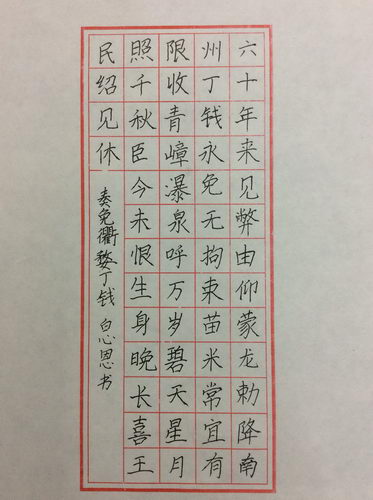 六十年来见弊由仰蒙龙敕降南
州丁钱永免无拘束苗米常宜有
限收青嶂瀑泉呼万岁碧天星月
照千秋臣今未恨生身晚长喜王
民绍见休
奏免衢婺丁钱 白心恩书